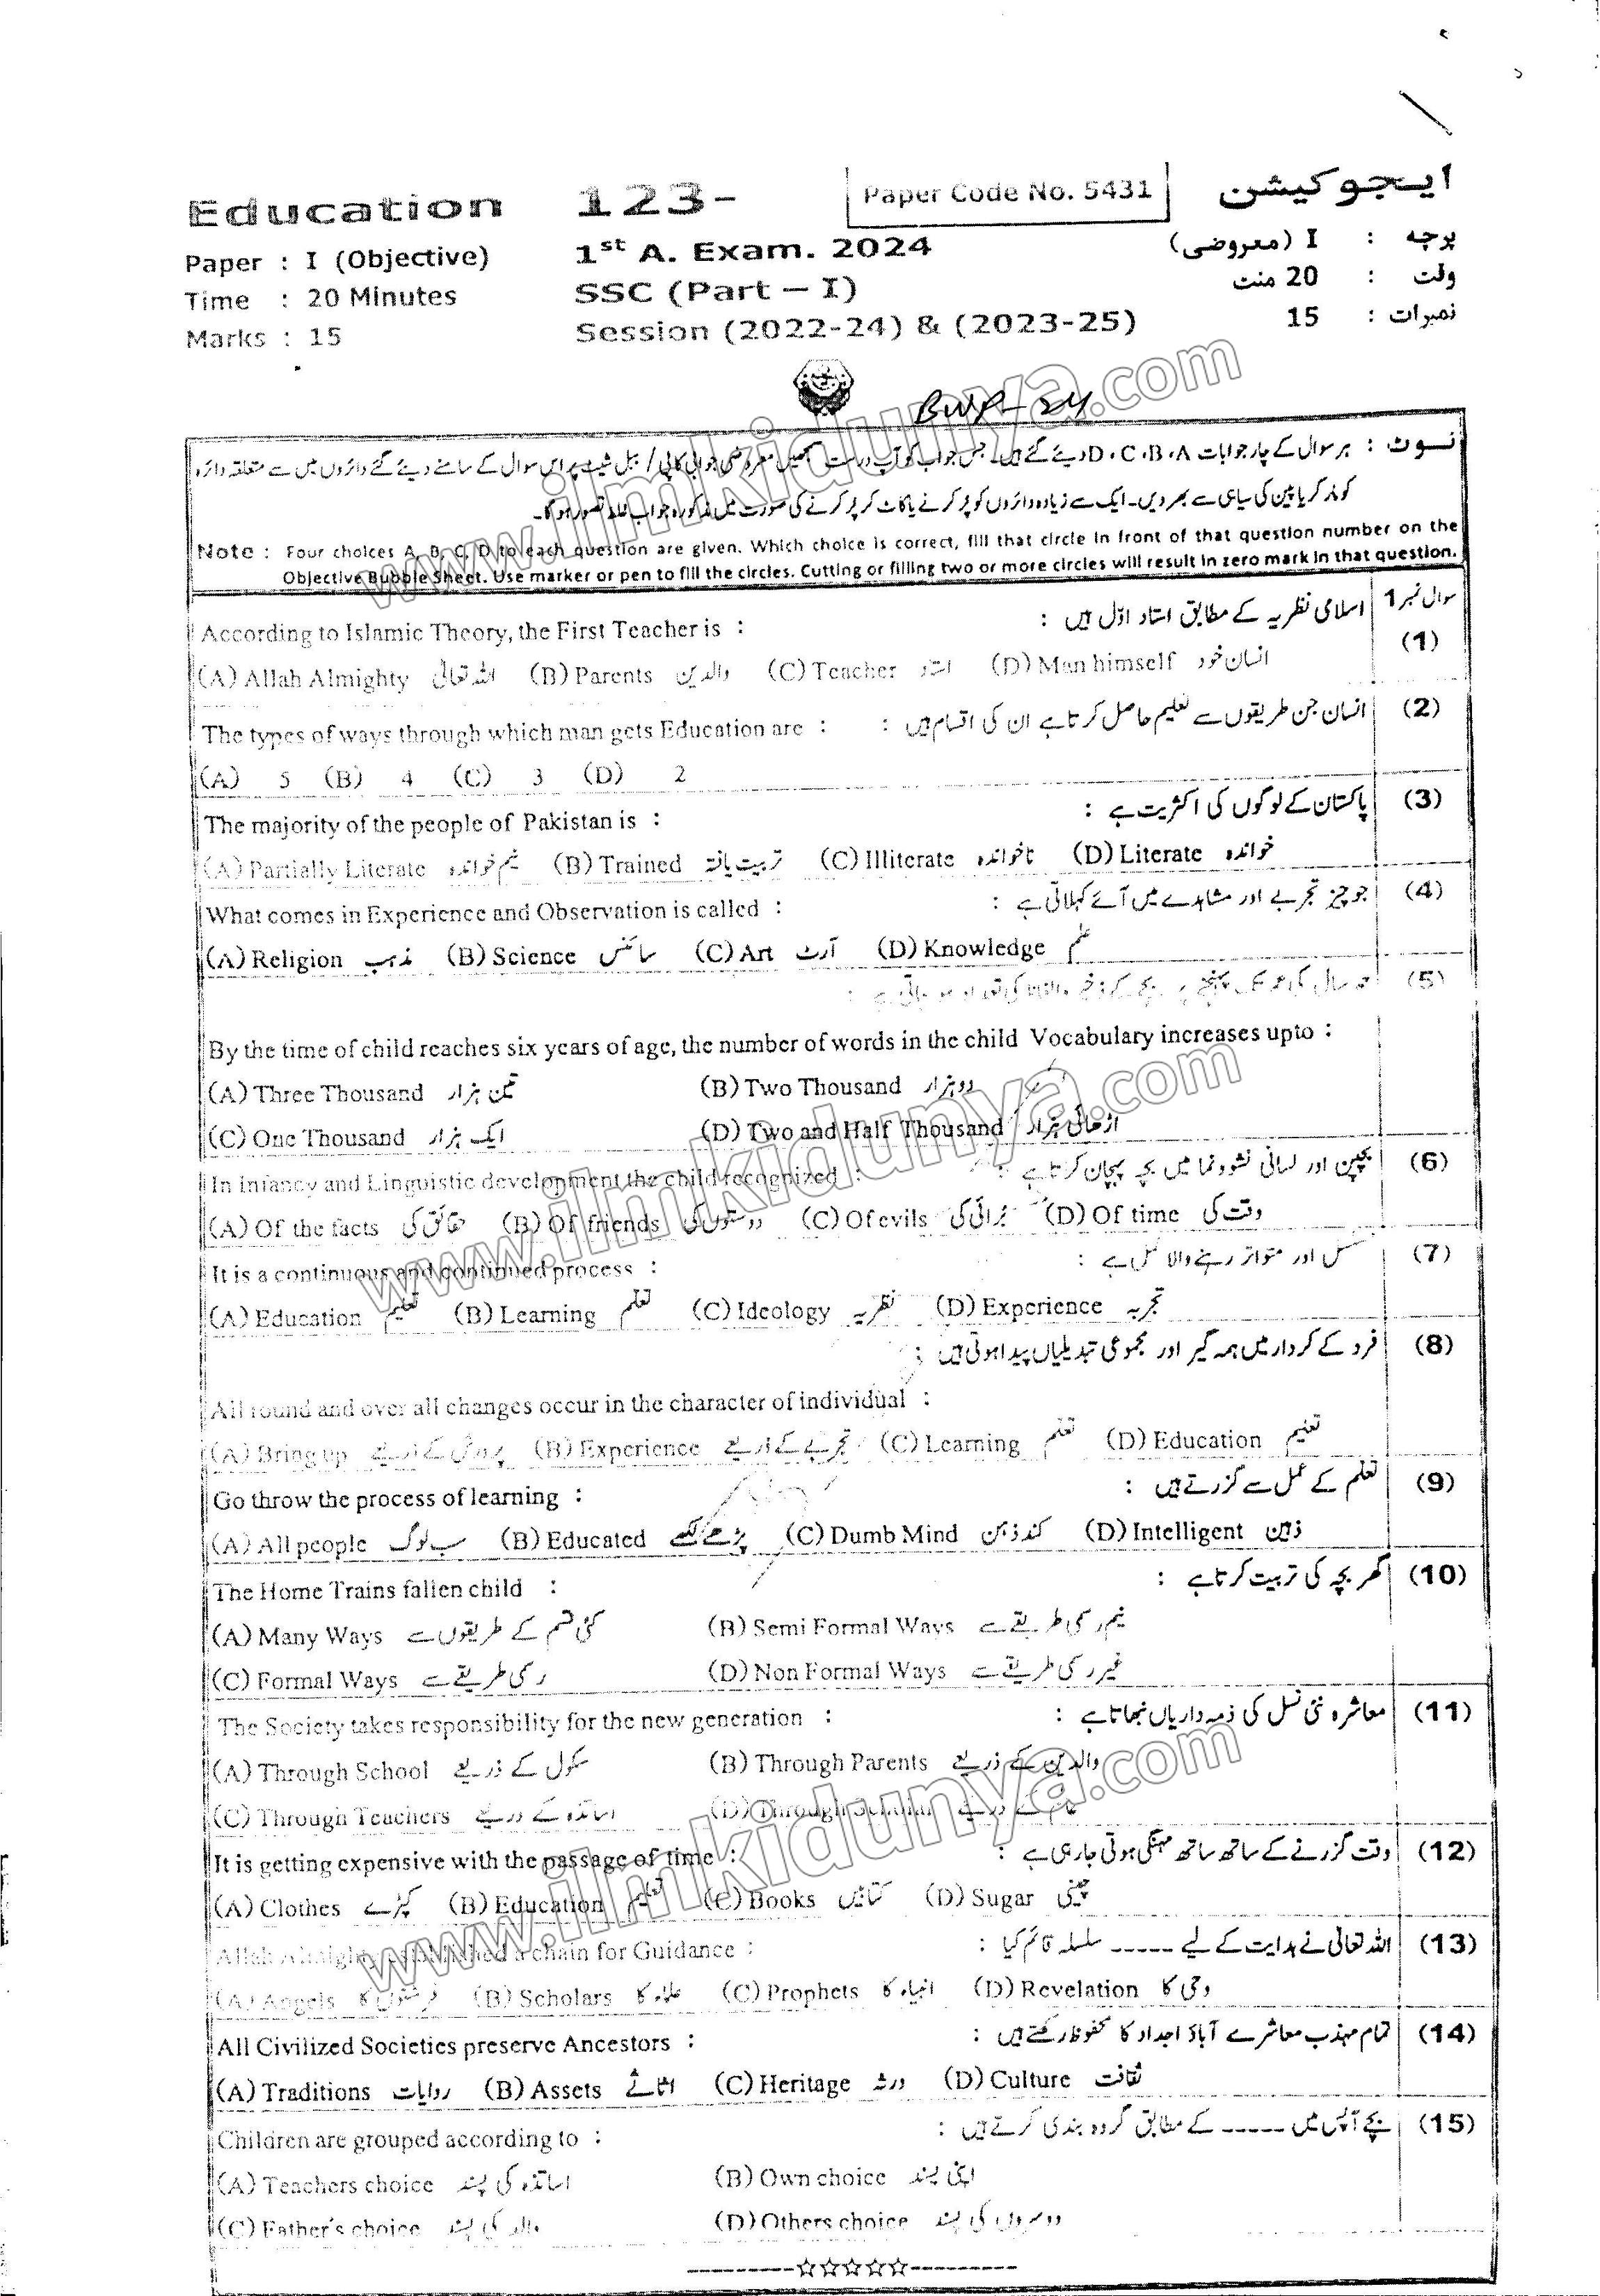 Education 123- Paper Code No. 5431 ایجوکیشن
Paper : I (Objective) 1st A. Exam. 2024 پرچہ : I (معروضی)
Time : 20 Minutes SSC (Part – I) وقت : 20 منٹ
Marks : 15 Session (2022-24) & (2023-25) نمبرات : 15
BWP-24
نوٹ : ہر سوال کے چار جوابات D،C،B،A دیئے گئے ہیں۔ جس جواب کو آپ درست سمجھیں معروضی جوابی کاپی/ببل شیٹ پر اس سوال کے سامنے دیئے گئے دائروں میں سے متعلقہ دائرہ
کو مارکر یا پین کی سیاہی سے بھر دیں۔ ایک سے زیادہ دائروں کو پُر کرنے یا کاٹ کر پُر کرنے کی صورت میں مذکورہ جواب غلط تصور ہوگا۔
Note : Four choices A, B, C, D to each question are given. Which choice is correct, fill that circle in front of that question number on the
Objective Bubble Sheet. Use marker or pen to fill the circles. Cutting or filling two or more circles will result in zero mark in that question.
سوال نمبر 1
According to Islamic Theory, the First Teacher is : اسلامی نظریہ کے مطابق استاد اوّل ہیں : (1)
(A) Allah Almighty اللہ تعالیٰ (B) Parents والدین (C) Teacher استاد (D) Man himself انسان خود
The types of ways through which man gets Education are : انسان جن طریقوں سے تعلیم حاصل کرتا ہے ان کی اقسام ہیں : (2)
(A) 5 (B) 4 (C) 3 (D) 2
The majority of the people of Pakistan is : پاکستان کے لوگوں کی اکثریت ہے : (3)
(A) Partially Literate نیم خواندہ (B) Trained تربیت یافتہ (C) Illiterate ناخواندہ (D) Literate خواندہ
What comes in Experience and Observation is called : جو چیز تجربے اور مشاہدے میں آئے کہلاتی ہے : (4)
(A) Religion مذہب (B) Science سائنس (C) Art آرٹ (D) Knowledge علم
(5)
By the time of child reaches six years of age, the number of words in the child Vocabulary increases upto :
(A) Three Thousand تین ہزار (B) Two Thousand دو ہزار
(C) One Thousand ایک ہزار (D) Two and Half Thousand اڑھائی ہزار
In Infancy and Linguistic development the child recognized : بچپن اور لسانی نشوونما میں بچہ پہچان کرتا ہے : (6)
(A) Of the facts حقائق کی (B) Of friends دوستوں کی (C) Of evils بُرائی کی (D) Of time وقت کی
It is a continuous and continued process : مسلسل اور متواتر رہنے والا عمل ہے : (7)
(A) Education تعلیم (B) Learning تعلم (C) Ideology نظریہ (D) Experience تجربہ
فرد کے کردار میں ہمہ گیر اور مجموعی تبدیلیاں پیدا ہوتی ہیں : (8)
All round and over all changes occur in the character of individual :
(A) Bring up پرورش کے ذریعے (B) Experience تجربے کے ذریعے (C) Learning تعلم (D) Education تعلیم
Go throw the process of learning : تعلم کے عمل سے گزرتے ہیں : (9)
(A) All people سب لوگ (B) Educated پڑھے لکھے (C) Dumb Mind کند ذہن (D) Intelligent ذہین
The Home Trains fallen child : گھر بچہ کی تربیت کرتا ہے : (10)
(A) Many Ways کئی قسم کے طریقوں سے (B) Semi Formal Ways نیم رسمی طریقے سے
(C) Formal Ways رسمی طریقے سے (D) Non Formal Ways غیر رسمی طریقے سے
The Society takes responsibility for the new generation : معاشرہ نئی نسل کی ذمہ داریاں نبھاتا ہے : (11)
(A) Through School سکول کے ذریعے (B) Through Parents والدین کے ذریعے
(C) Through Teachers اساتذہ کے ذریعے (D) Through
It is getting expensive with the passage of time : وقت گزرنے کے ساتھ ساتھ مہنگی ہوتی جارہی ہے : (12)
(A) Clothes کپڑے (B) Education تعلیم (C) Books کتابیں (D) Sugar چینی
Allah Almighty established a chain for Guidance : اللہ تعالیٰ نے ہدایت کے لیے ----- سلسلہ قائم کیا : (13)
(A) Angels فرشتوں کا (B) Scholars علماء کا (C) Prophets انبیاء کا (D) Revelation وحی کا
All Civilized Societies preserve Ancestors : تمام مہذب معاشرے آباؤ اجداد کا محفوظ رکھتے ہیں : (14)
(A) Traditions روایات (B) Assets اثاثے (C) Heritage ورثہ (D) Culture ثقافت
Children are grouped according to : بچے آپس میں ----- کے مطابق گروہ بندی کرتے ہیں : (15)
(A) Teachers choice اساتذہ کی پسند (B) Own choice اپنی پسند
(C) Father's choice والد کی پسند (D) Others choice دوسروں کی پسند
www.ilmkidunya.com
www.ilmkidunya.com
www.ilmkidunya.com